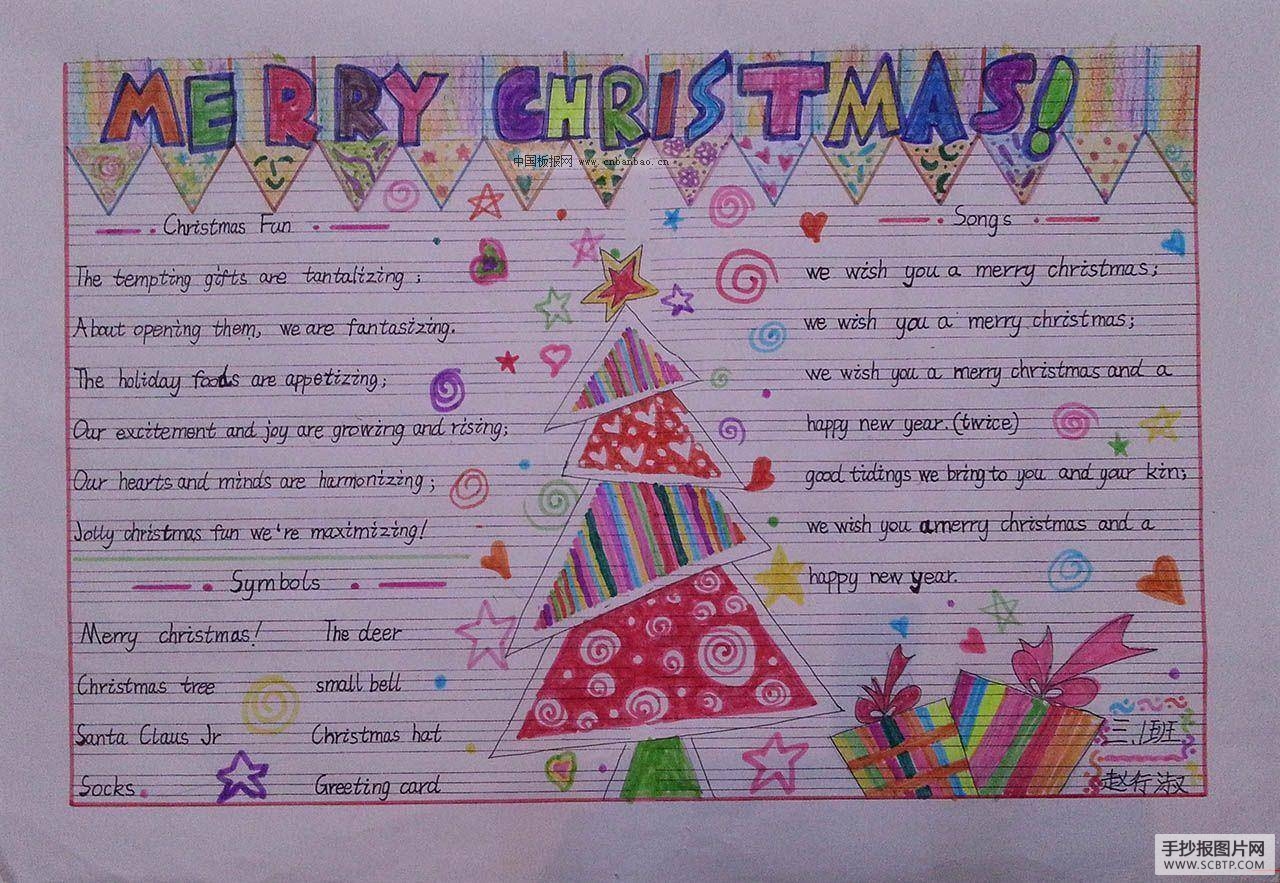 MERRY CHRISTMAS!
中国板报网 www.cnbanbao.cn
Christmas Fun
The tempting gifts are tantalizing;
About opening them, we are fantasizing.
The holiday foods are appetizing;
Our excitement and joy are growing and rising;
Our hearts and minds are harmonizing;
Jolly christmas fun we're maximizing!
Symbols
Merry christmas! The deer
Christmas tree small bell
Santa Claus Jr Christmas hat
Socks Greeting card
Songs
we wish you a merry christmas;
we wish you a merry christmas;
we wish you a merry christmas and a
happy new year.(twice)
good tidings we bring to you and your kin;
we wish you a merry christmas and a
happy new year.
三.1班
赵行淑
手抄报图片网
WWW.SCBTP.COM